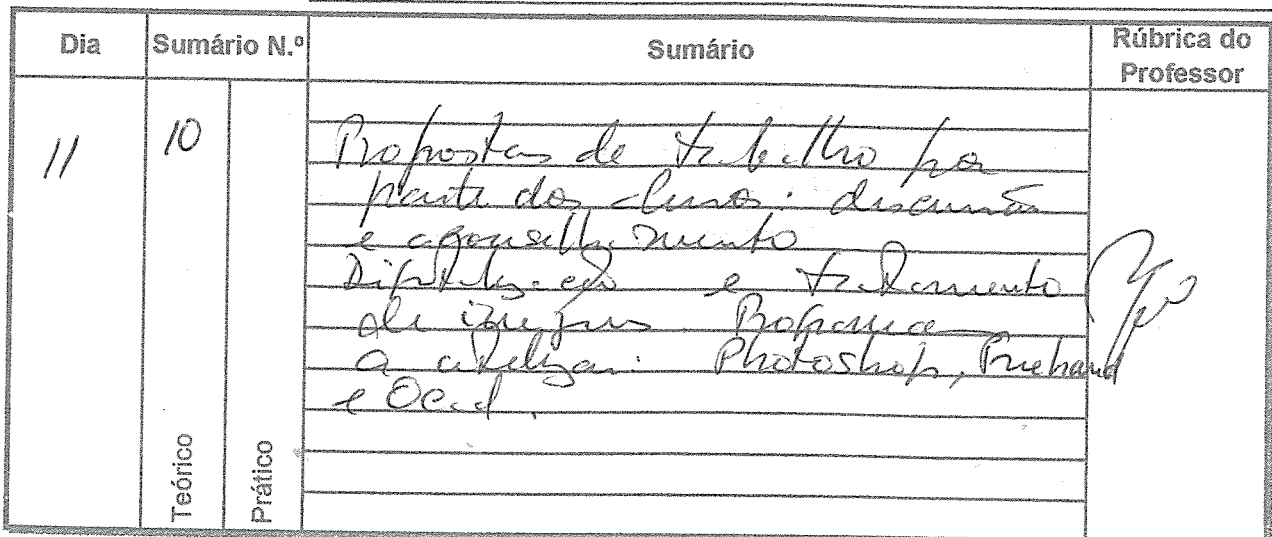 Dia Sumário N.º Sumário Rúbrica do Professor
11 10 Propostas de trabalho por
parte dos alunos: discussão
e aconselhamento
Digitalização e tratamento
de imagens. Programas
a utilizar: Photoshop, Freehand
e Ocad.
Teórico Prático